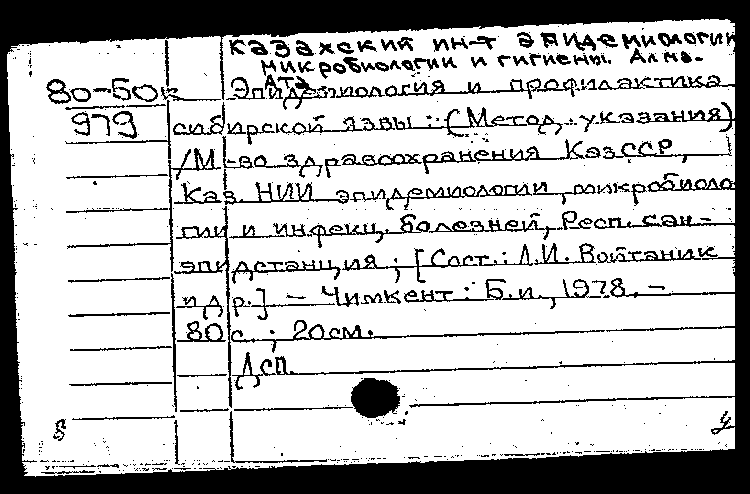 Казахский ин-т эпидемиологии
микробиологии и гигиены. Алма-
Ата
80-50к Эпидемиология и профилактика
979 сибирской язвы : (Метод. указания)
/М-во здравоохранения КазССР,
Каз. НИИ эпидемиологии, микробиоло
гии и инфекц. болезней, Респ. сан-
эпидстанция ; [Сост.: Л.И. Войтаник
и др.] - Чимкент : Б.и., 1978. -
80 с. ; 20см.
Дсп.